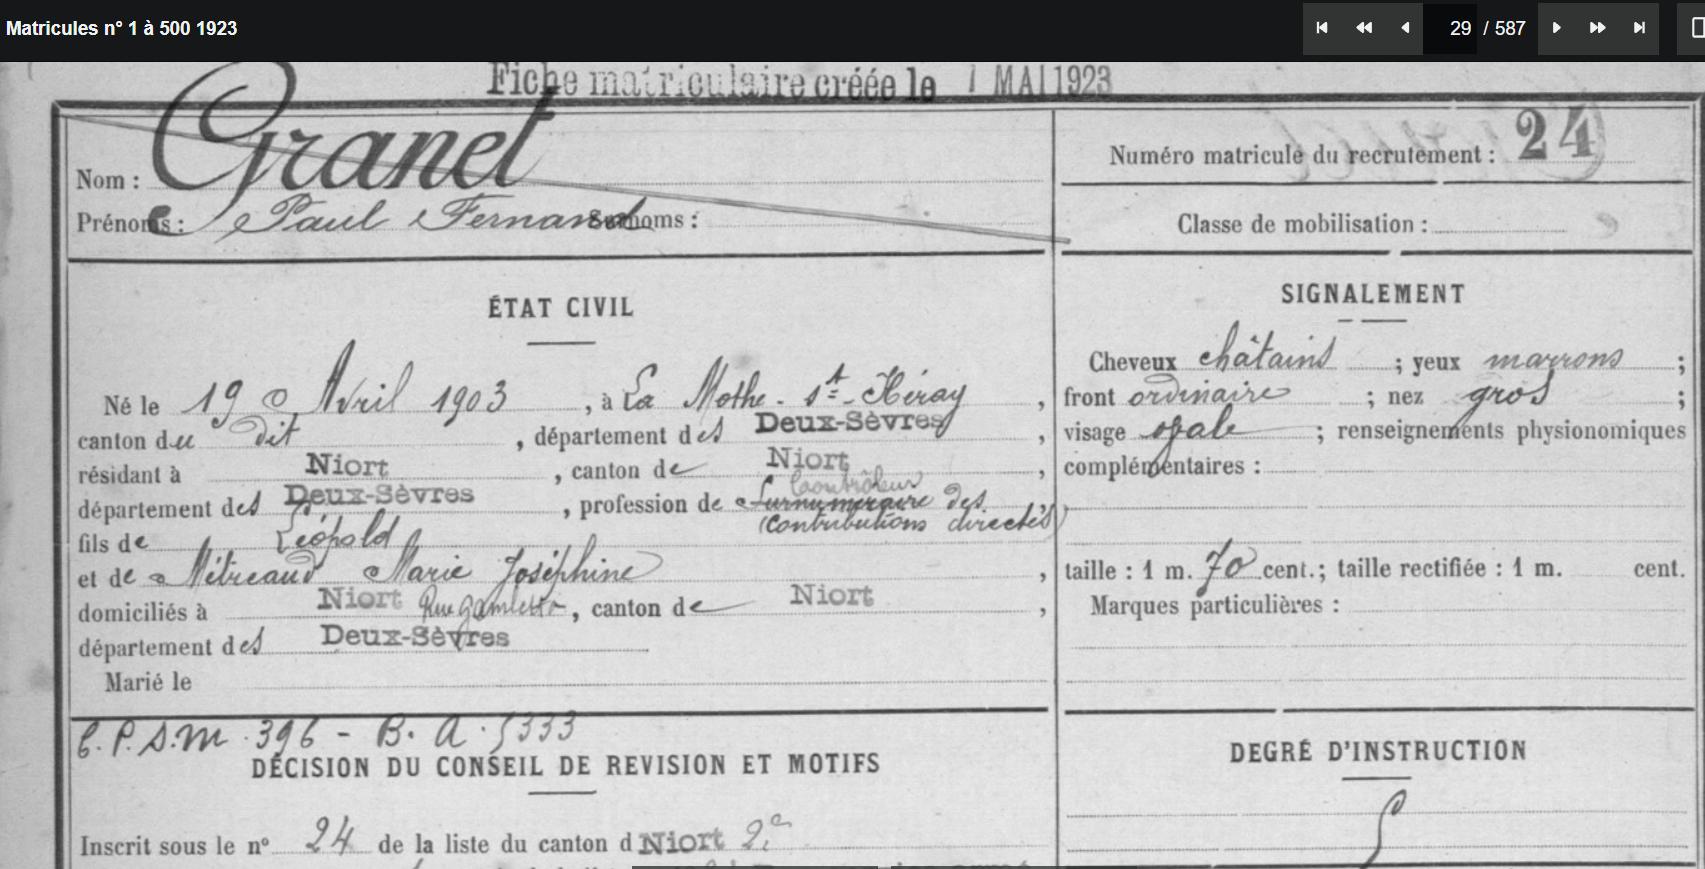 Matricules n° 1 à 500 1923
29 / 587
Fiche matriculaire créée le 1 MAI 1923
Nom : Granet
Prénoms : Paul Fernand Surnoms :
Numéro matricule du recrutement : 24
Classe de mobilisation :
ÉTAT CIVIL
Né le 19 Avril 1903, à La Mothe-St-Héray,
canton du dit, département des Deux-Sèvres,
résidant à Niort, canton de Niort,
Contrôleur
département des Deux-Sèvres, profession de Surnuméraire des
(Contributions directes)
fils de Léopold
et de Métreaud Marie Joséphine,
domiciliés à Niort Rue Gambetta, canton de Niort,
département des Deux-Sèvres
Marié le
SIGNALEMENT
Cheveux châtains ; yeux marrons ;
front ordinaire ; nez gros ;
visage ovale ; renseignements physionomiques
complémentaires :
taille : 1 m. 70 cent. ; taille rectifiée : 1 m. cent.
Marques particulières :
C.P.S.M. 396 - B.A. 5333
DÉCISION DU CONSEIL DE REVISION ET MOTIFS
Inscrit sous le n° 24 de la liste du canton d Niort 2e
DEGRÉ D'INSTRUCTION